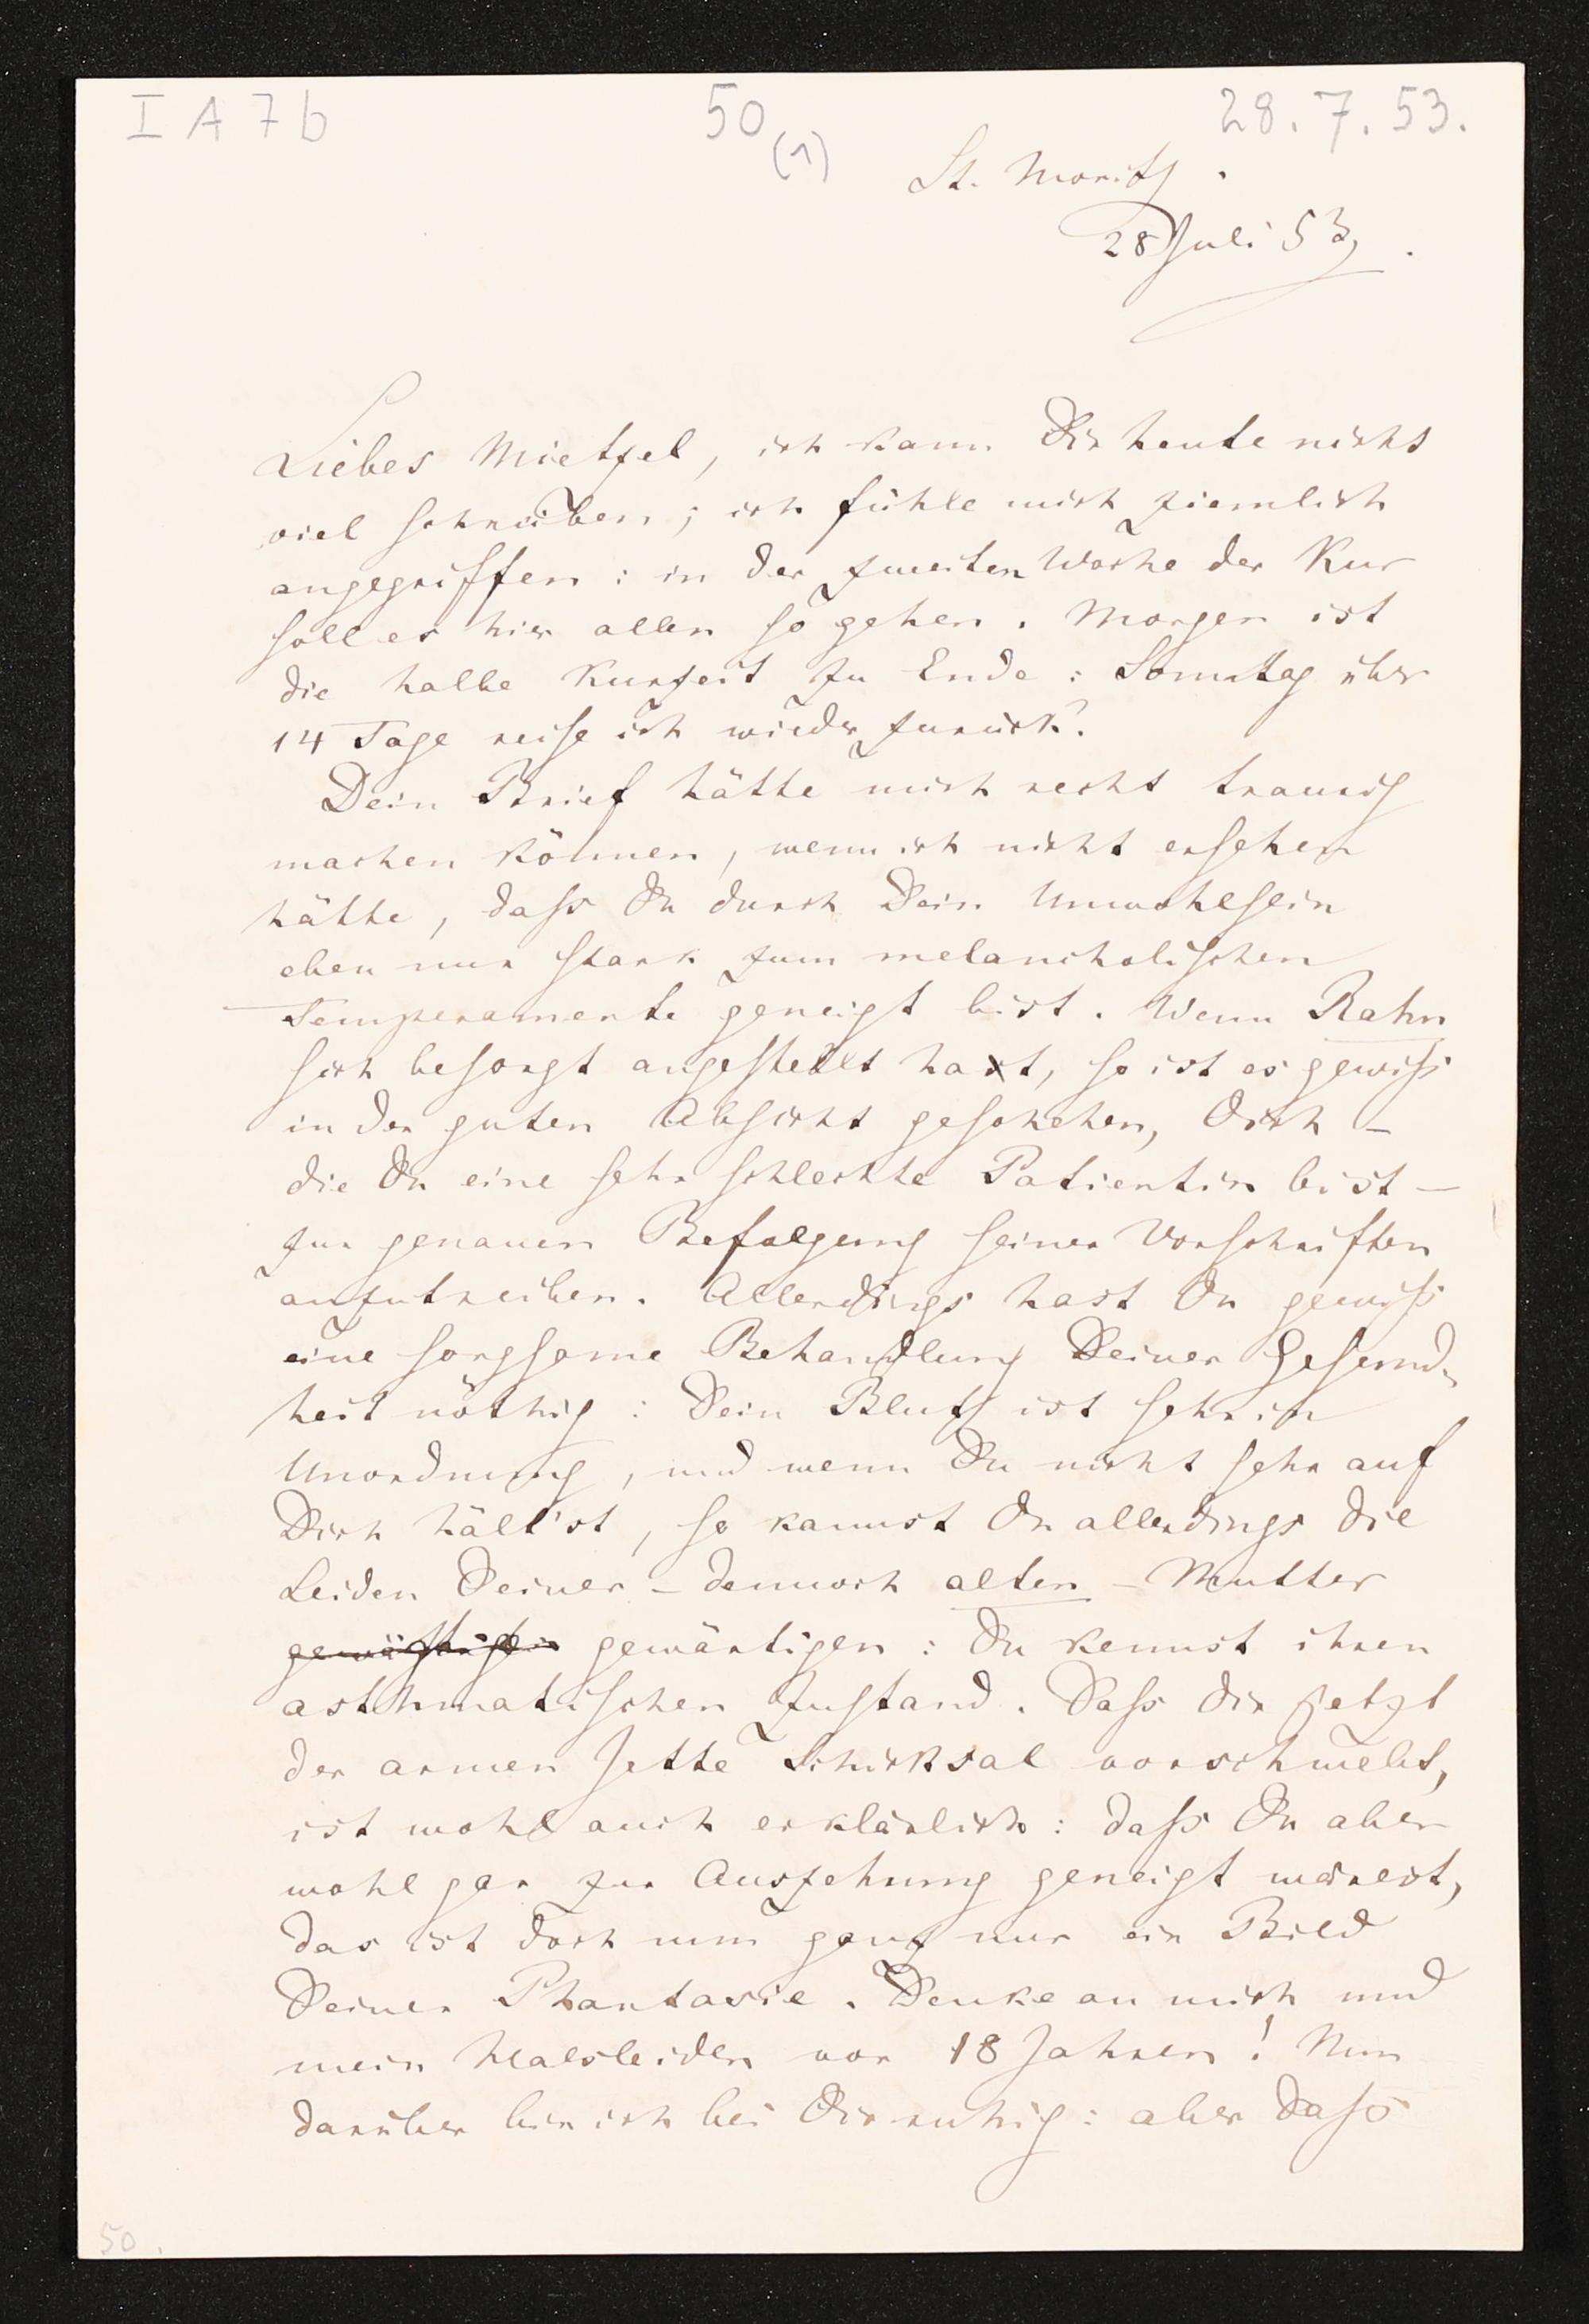 I A 7 b 50 (1) 28. 7. 53.
St. Moritz.
28 Juli 53.
Liebes Mietzel, ich kann Dir heute nicht
viel schreiben; ich fühle mich ziemlich
angegriffen: in der zweiten Woche der Kur
soll es hier allen so gehen. Morgen ist
die halbe Kurzeit zu Ende: Sonntag über
14 Tage reise ich wieder zurück.
Dein Brief hätte mich recht traurig
machen können, wenn ich nicht ersehen
hätte, dass Du durch Dein Unwohlsein
eben nur stark zum melancholischen
Temperamente geneigt bist. Wenn Rahn
sich besorgt angestellt hat, so ist es gewiss
in der guten Absicht geschehen, Dich –
die Du eine sehr schlechte Patientin bist –
zur genauen Befolgung seiner Vorschriften
anzutreiben. Allerdings hast Du gewiss
eine sorgsame Behandlung Deiner Gesund-
heit nöthig: Dein Blut ist sehr in
Unordnung, und wenn Du nicht sehr auf
Dich hält'st, so kannst Du allerdings die
Leiden Deiner – dennoch alten – Mutter
gewärtigen: Du kennst ihren
asthmatischen Zustand. Dass Dir jetzt
der armen Jette Schicksal vorschwebt,
ist wohl auch erklärlich: dass Du aber
wohl gar zur Auszehrung geneigt wärest,
das ist doch nun ganz nur ein Bild
Deiner Phantasie. Denke an mich und
mein Halsleiden vor 18 Jahren! Nun
darüber bin ich bei Dir ruhig: aber dass
50.